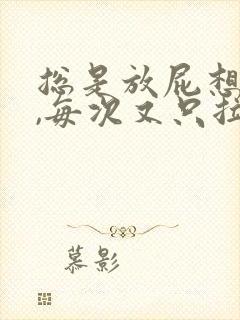 总是放屁想
,每次又只拉
慕影